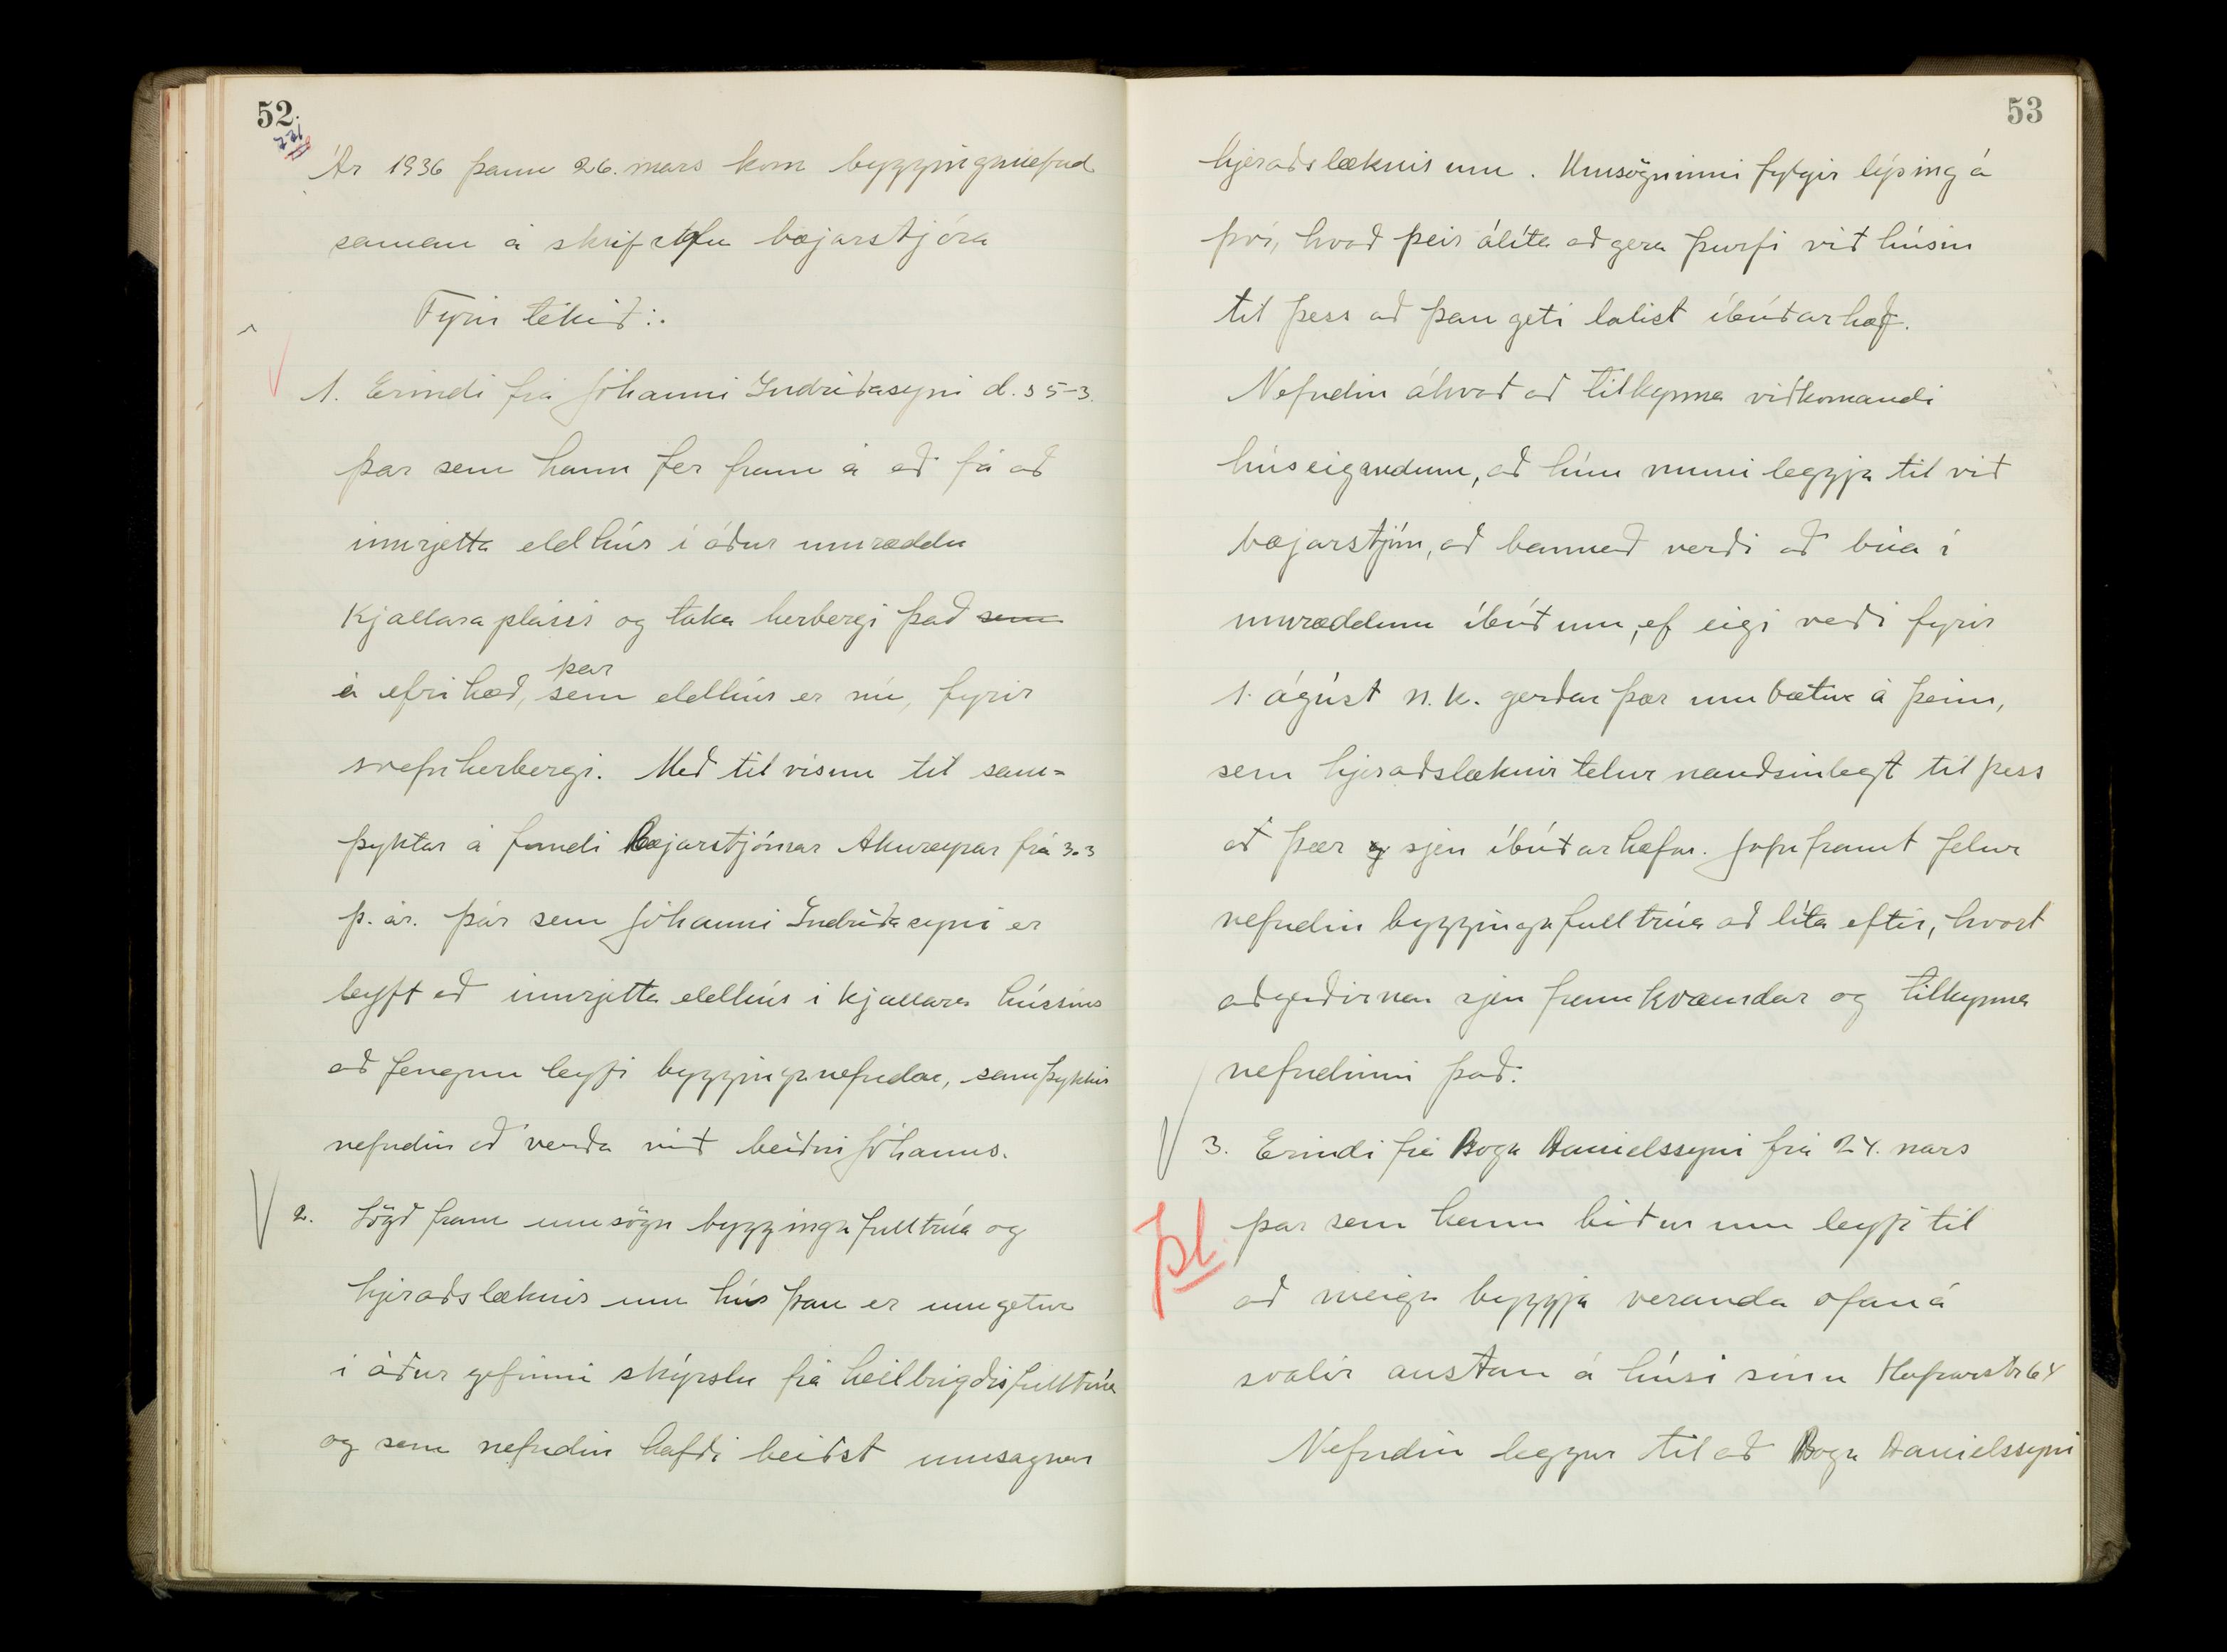 52.
Ár 1936 þann 26. mars kom byggingnefnd
saman á skrifstofu bæjarstjóra
Fyrir tekið:.
1. Erindi frá Jóhanni Indriðasyni d. s 5-3.
þar sem hann fer fram á að fá að
innrjetta eldhús í áður umræddu
kjallaraplássi og taka herbergi það sem
á efri hæð, þar sem eldhús er nú, fyrir
svefnherbergi. Með tilvísun til sam-
þyktar á fundi Bæjarstjórnar Akureyrar frá 3.3
þ. ár. þar sem Jóhanni Indriðasyni er
leyft að innrjetta eldhús í kjallara hússins
að fengnu leyfi bygginganefndar, samþykkir
nefndin að verða við beiðni Jóhanns.
2. Lögð fram umsögn byggingafulltrúa og
hjeraðslæknis um hús þau er um getur
í áður gefinni skýrslu frá heilbrigðisfulltrúa
og sem nefndin hafði beiðst umsagnar
53
hjeraðslæknis um. Umsögninni fylgir lýsing á
því, hvað þeir álíta að gera þurfi við húsin
til þess að þau geti talist íbúðarhæf.
Nefndin ákvað að tilkynna viðkomandi
húseigendum, að hún muni leggja til við
bæjarstjórn, að bannað verði að búa í
umræddum íbúðum, ef eigi verði fyrir
1. ágúst n.k. gerðar þær umbætur á þeim,
sem hjeraðslæknir telur nauðsynlegt til þess
að þær sjeu íbúðarhæfar. Jafnframt felur
nefndin byggingafulltrúa að líta eftir, hvort
aðgerðirnar sjeu framkvæmdar og tilkynna
nefndinni það.
3. Erindi frá Boga Daníelssyni frá 24. mars
þl. þar sem hann biður um leyfi til
að meiga byggja veranda ofan á
svalir austan á húsi sínu Hafnarstr 64
Nefndin leggur til að Boga Daníelssyni